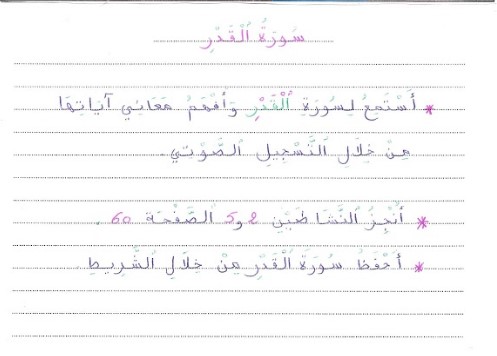 سُورَةُ الْقَدْرِ
* أَسْتَمِعُ لِسُورَةِ الْقَدْرِ وَأَفْهَمُ مَعَانِي آيَاتِهَا
مِنْ خِلَالِ التَّسْجِيلِ الصَّوْتِي.
* أُنْجِزُ النَّشَاطَيْنِ 2 و 5 الصَّفْحَة 60 .
* أَحْفَظُ سُورَةَ الْقَدْرِ مِنْ خِلَالِ الشَّرِيطِ.